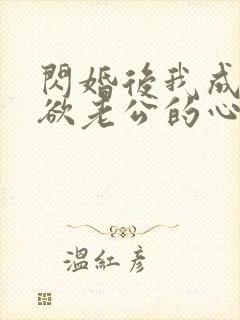 閃婚後我成
欲老公的心
溫紅彥